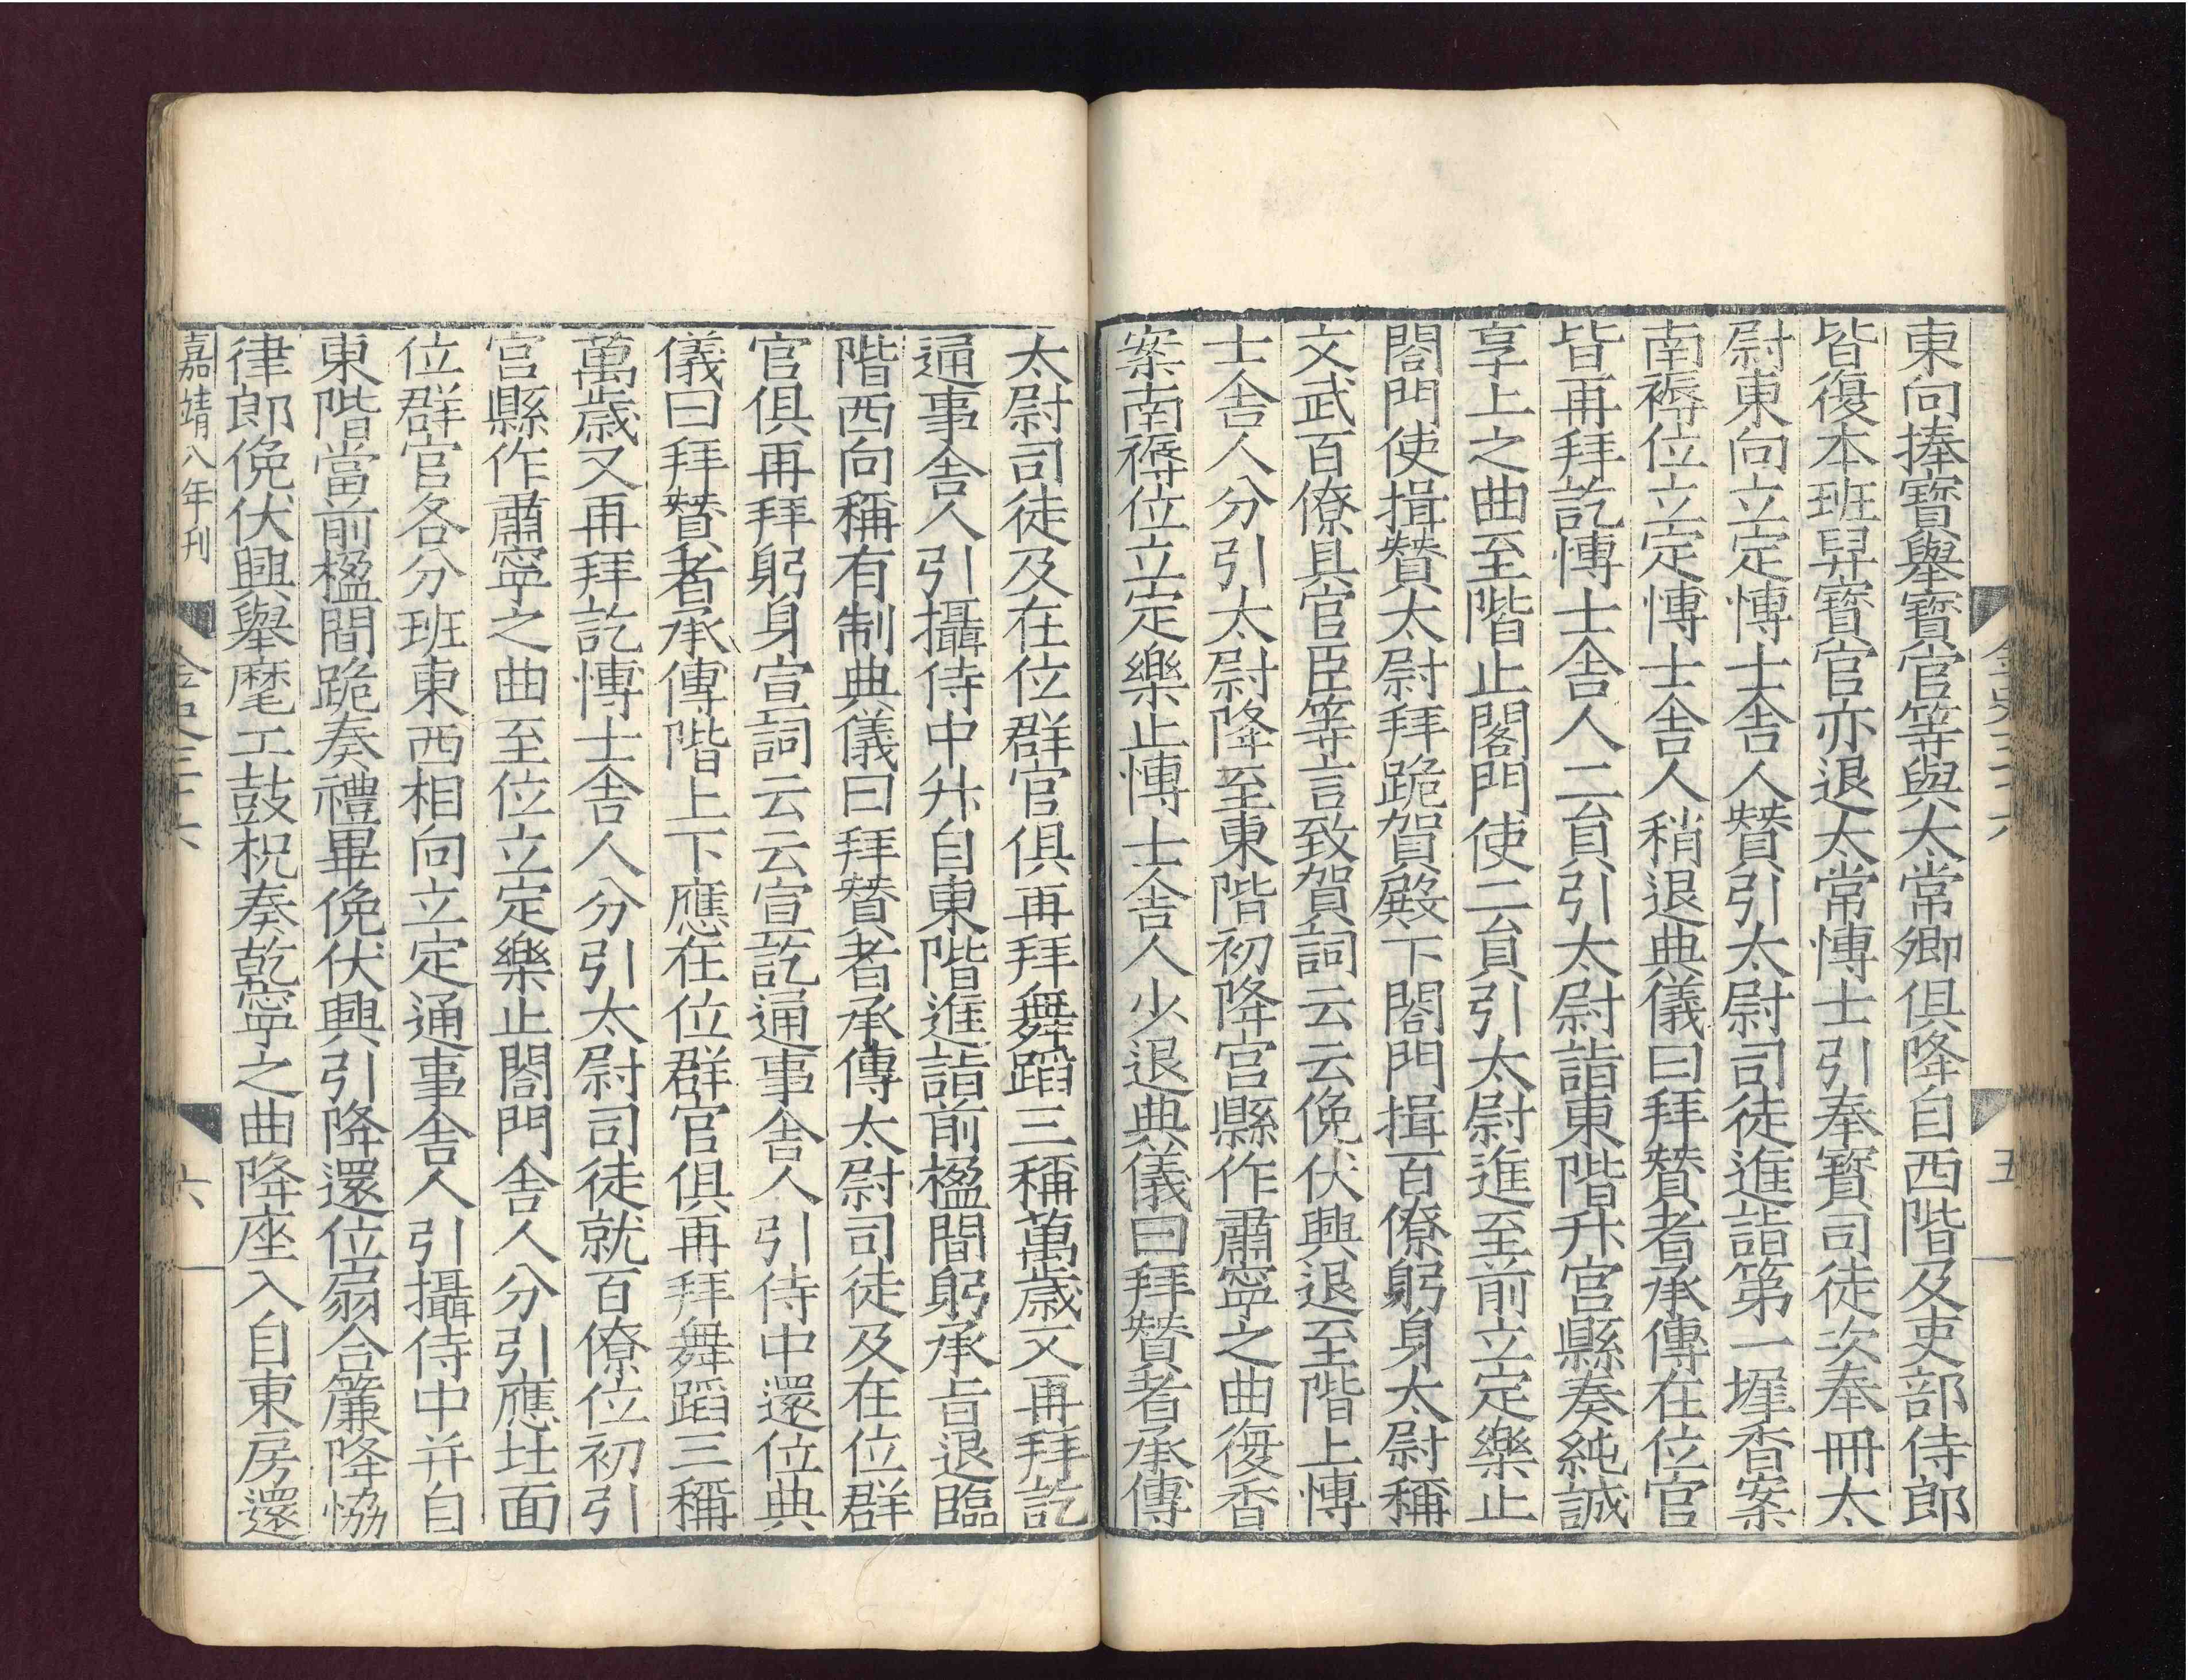 東向捧寶舉寶官等與太常卿俱降自西階及吏部侍郎
皆復本班舁寶官亦退太常博士引奉寶司徒次奉冊太
尉東向立定博士舍人贊引太尉司徒進詣第一墀香案
南褥位立定博士舍人稍退典儀曰拜贊者承傳在位官
皆再拜訖博士舍人二員引太尉詣東階升宮縣奏純誠
享上之曲至階止閣門使二員引太尉進至前立定樂止
閣門使揖贊太尉拜跪賀殿下閣門揖百僚躬身太尉稱
文武百僚具官臣等言致賀詞云云俛伏興退至階上博
士舍人分引太尉降至東階初降宮縣作肅寧之曲復香
案南褥位立定樂止博士舍人少退典儀曰拜贊者承傳
五
太尉司徒及在位群官俱再拜舞蹈三稱萬歲又再拜訖
通事舍人引攝侍中升自東階進詣前楹間躬承旨退臨
階西向稱有制典儀曰拜贊者承傳太尉司徒及在位群
官俱再拜躬身宣詞云云宣訖通事舍人引侍中還位典
儀曰拜贊者承傳階上下應在位群官俱再拜舞蹈三稱
萬歲又再拜訖博士舍人分引太尉司徒就百僚位初引
宮縣作肅寧之曲至位立定樂止閣門舍人分引應北面
位群官各分班東西相向立定通事舍人引攝侍中升自
東階當前楹間跪奏禮畢俛伏興引降還位扇合簾降恊
律郎俛伏興舉麾工鼓柷奏乾寧之曲降座入自東房還
嘉靖八年刊 金史三十六 六